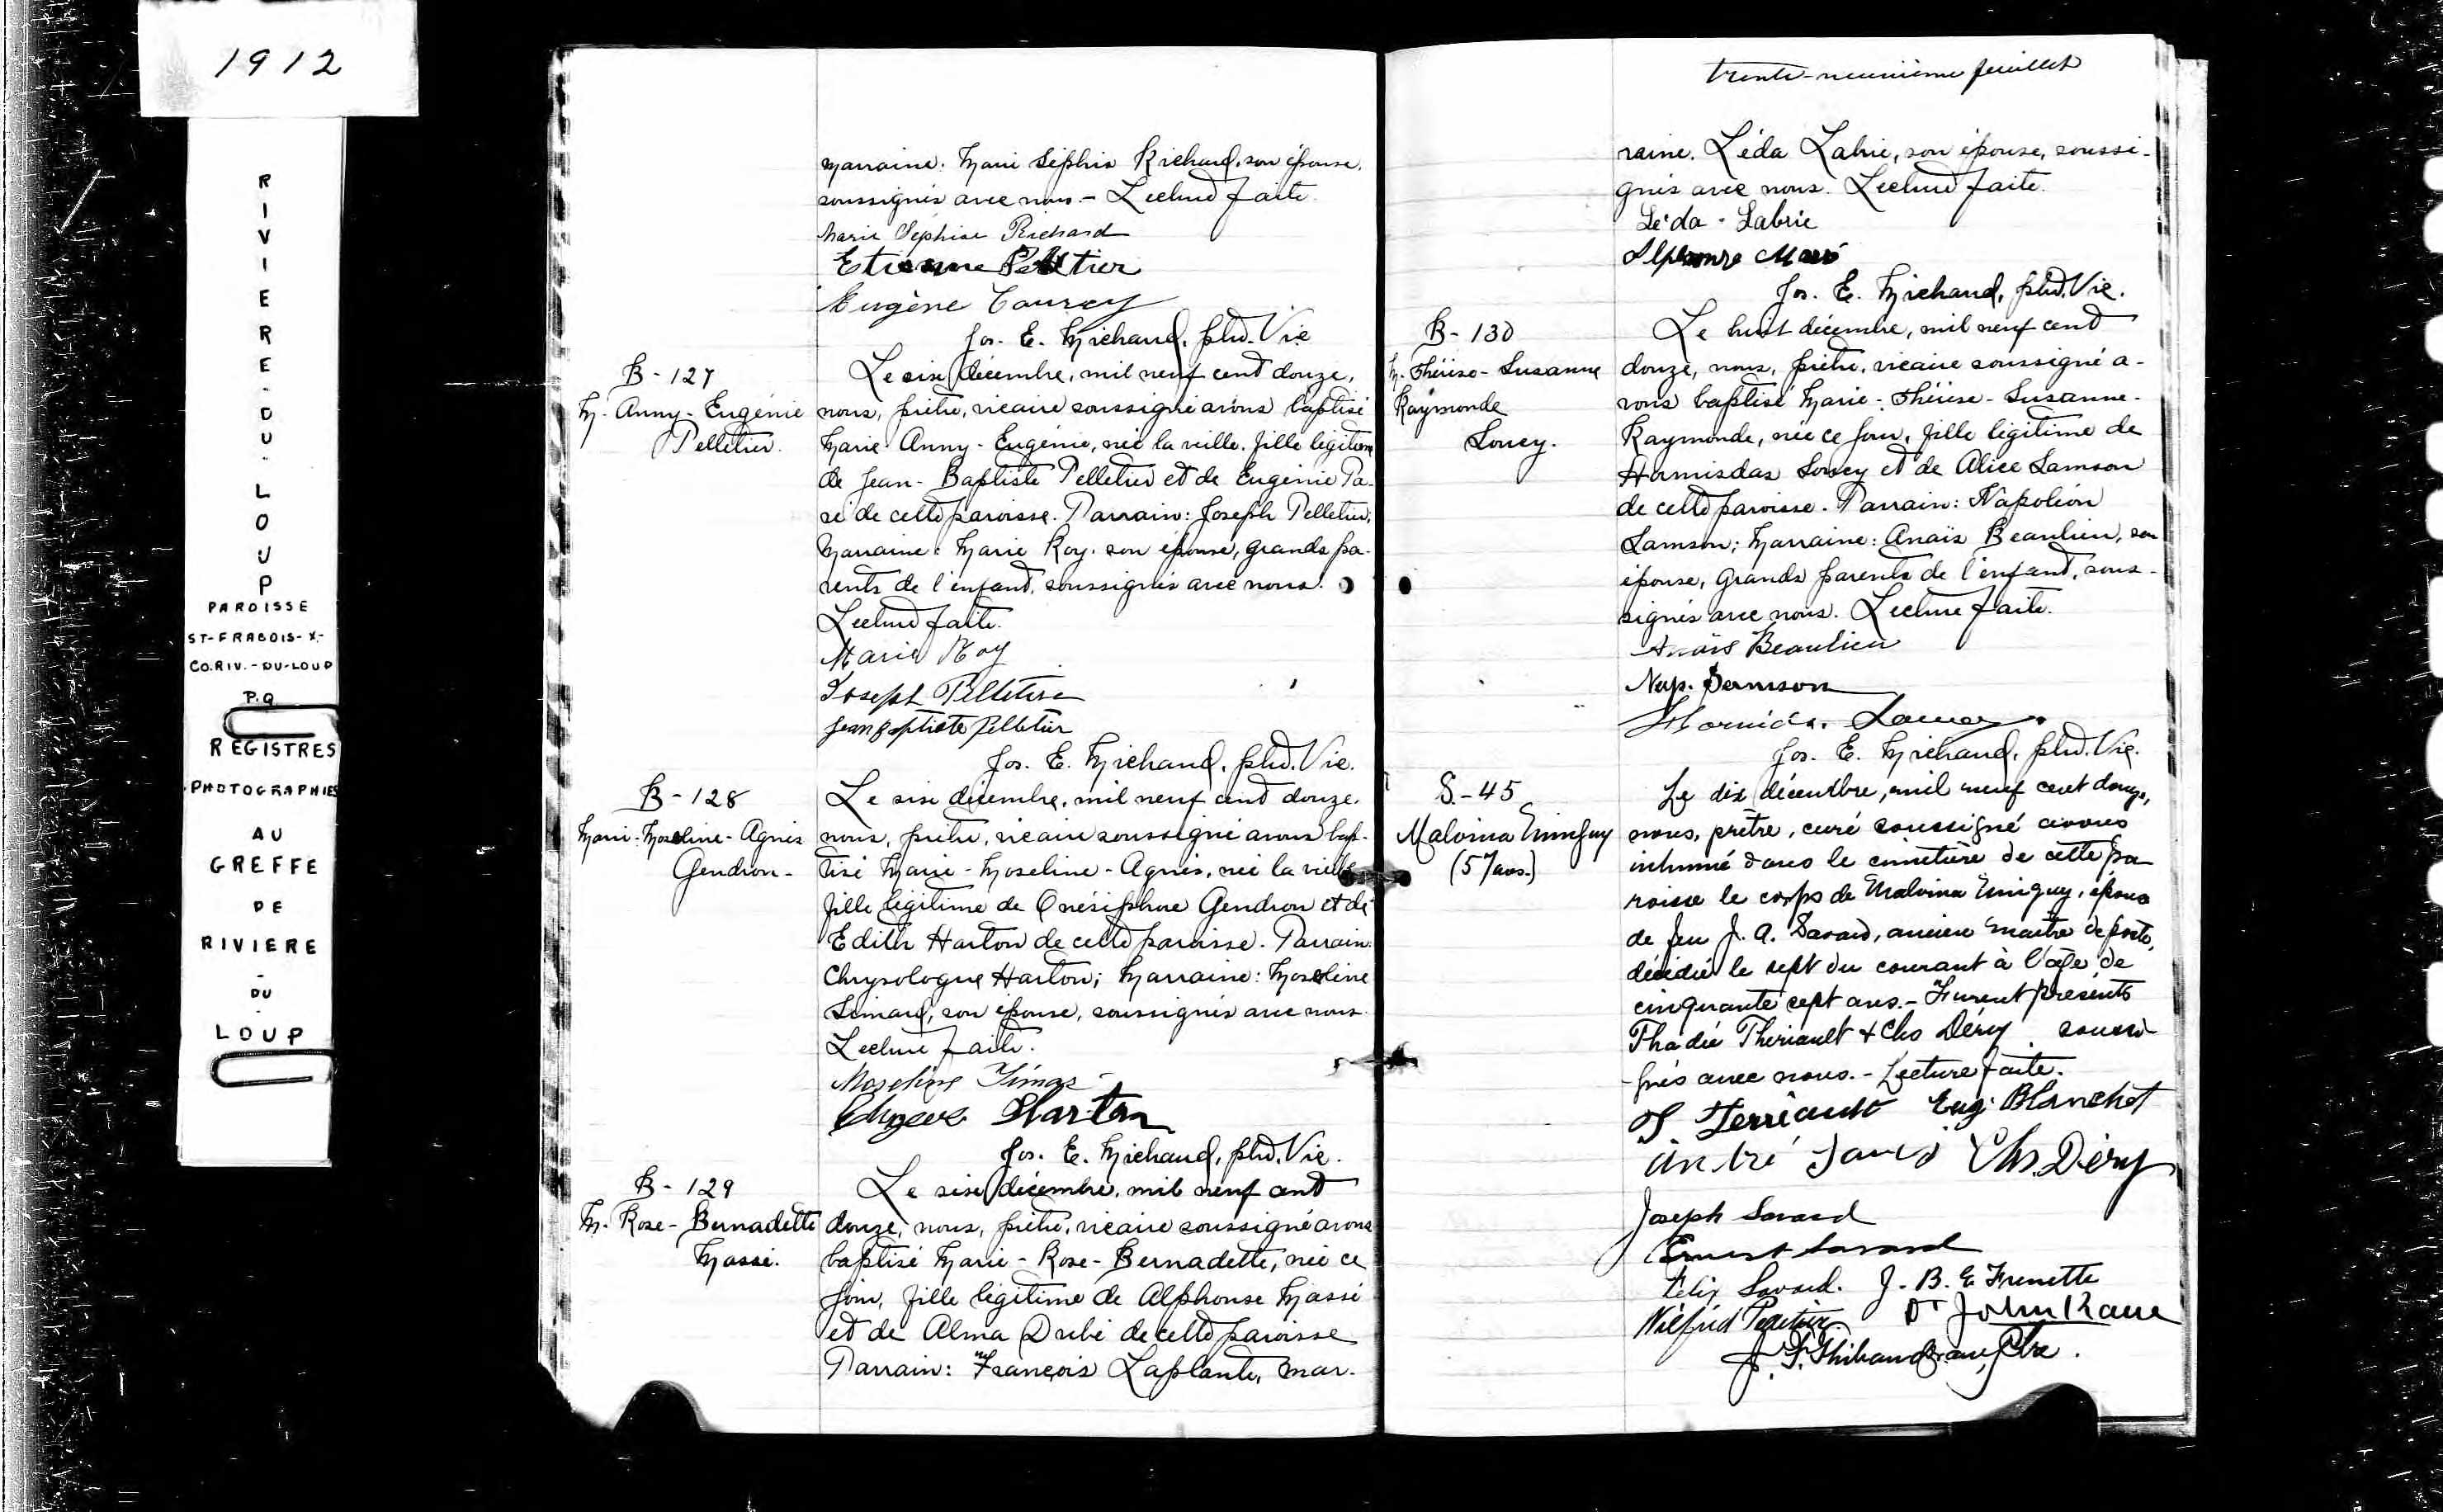 1912
RIVIERE-DU-LOUP
PAROISSE
ST-FRABOIS-X-
CO.RIV.-DU-LOUP
P.Q
REGISTRES
PHOTOGRAPHIES
AU
GREFFE
DE
RIVIERE
-
DU
-
LOUP
marraine: Marie Séphise Richard, son épouse,
soussignés avec nous.- Lecture faite.
Marie Séphise Richard
Etienne Pelletier
Eugène
Jos. E. Michaud, ptre. Vic
B-127
M-Anny-Eugénie
Pelletier.
Le six décembre, mil neuf cent douze,
nous, prêtre, vicaire soussigné avons baptisé
Marie-Anny-Eugénie, née la veille, fille légitime
de Jean-Baptiste Pelletier et de Eugénie Pa-
ré de cette paroisse. Parrain: Joseph Pelletier;
Marraine: Marie Roy, son épouse, grands pa-
rents de l'enfant, soussignés avec nous.
Lecture faite.
Marie Roy
Joseph Pelletier
Jean Baptiste Pelletier
Jos. E. Michaud, ptre. Vic.
B-128
Marie-Moseline-Agnès
Gendron-
Le six décembre, mil neuf cent douze,
nous, prêtre, vicaire soussigné avons bap-
tisé Marie-Moseline-Agnès, née la veille
fille légitime de Onésiphore Gendron et de
Edith Harton de cette paroisse. Parrain:
Chrysologue Harton; Marraine: Moseline
Simard, son épouse, soussignés avec nous.
Lecture faite.
Moseline Simar
Harton
Jos. E. Michaud, ptre. Vic.
B-129
M-Rose-Bernadette
Massé.
Le six décembre, mil neuf cent
douze, nous, prêtre, vicaire soussigné avons
baptisé Marie-Rose-Bernadette, née ce
jour, fille légitime de Alphonse Massé
et de Alma Dubé de cette paroisse
Parrain: François Laplante, mar-
trente-neuvième feuillet
raine. Léda Labrie, son épouse, soussi-
gnés avec nous. Lecture faite.
Léda Labrie
Alphonse
Jos. E. Michaud, ptre. Vic.
B-130
M-Thérèse-Susanne
Raymonde
Soucy.
Le huit décembre, mil neuf cent
douze, nous, prêtre, vicaire soussigné a-
vons baptisé Marie-Thérèse-Susanne-
Raymonde, née ce jour, fille légitime de
Hormisdas Soucy et de Alice Samson
de cette paroisse. Parrain: Napoléon
Samson; Marraine: Anaïs Beaulieu, son
épouse, grands parents de l'enfant, sous-
signés avec nous. Lecture faite.
Anaïs Beaulieu
Nap. Samson
Jos. E. Michaud, ptre. Vic.
S-45
Malvina Miniguy
(57 ans.)
Le dix décembre, mil neuf cent douze,
nous, prêtre, curé soussigné avons
inhumé dans le cimetière de cette pa
roisse le corps de Malvina Miniguy, épouse
de feu J. A. Savard, ancien maître de poste,
décédée le sept du courant à l'âge de
cinquante sept ans.- Furent présents
Thadée Theriault & Chs Déry soussi-
gnés avec nous.- Lecture faite.
T. Terriault Eug. Blanchet
André Chs. Déry
Joseph Savard
Ernest Savard
Félix Savard. J.-B. E Frenette
Wilfrid Dr John Kane
J. F. Thibaudeau, Ptre.